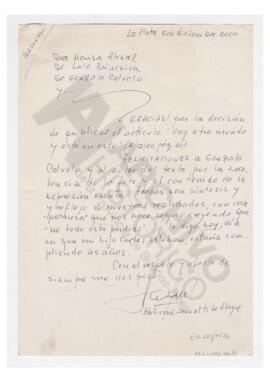 La Plata 6 de diciembre 2000
Sra Monsa Alvarez
Sr Lalo Painceira
Sr Gonzalo Calvelo
y...
GRACIAS! por la decisión
de publicar el artículo "Hay otro mundo
y está en este" (pág 10)
FELICITACIONES a Gonzalo
Calvelo y al autor del texto por la exce
lencia de la forma y el contenido de la
expresión escrita. Ambos son síntesis
y reflejo de nuestras realidades, con una
que nos hace seguir creyendo que
"no todo está perdido". Lo digo hoy, día
en que mi hijo Carlos Esteban, estaría cum
pliendo 45 años.
Con el respeto y afecto de
siempre me despido
Es copia